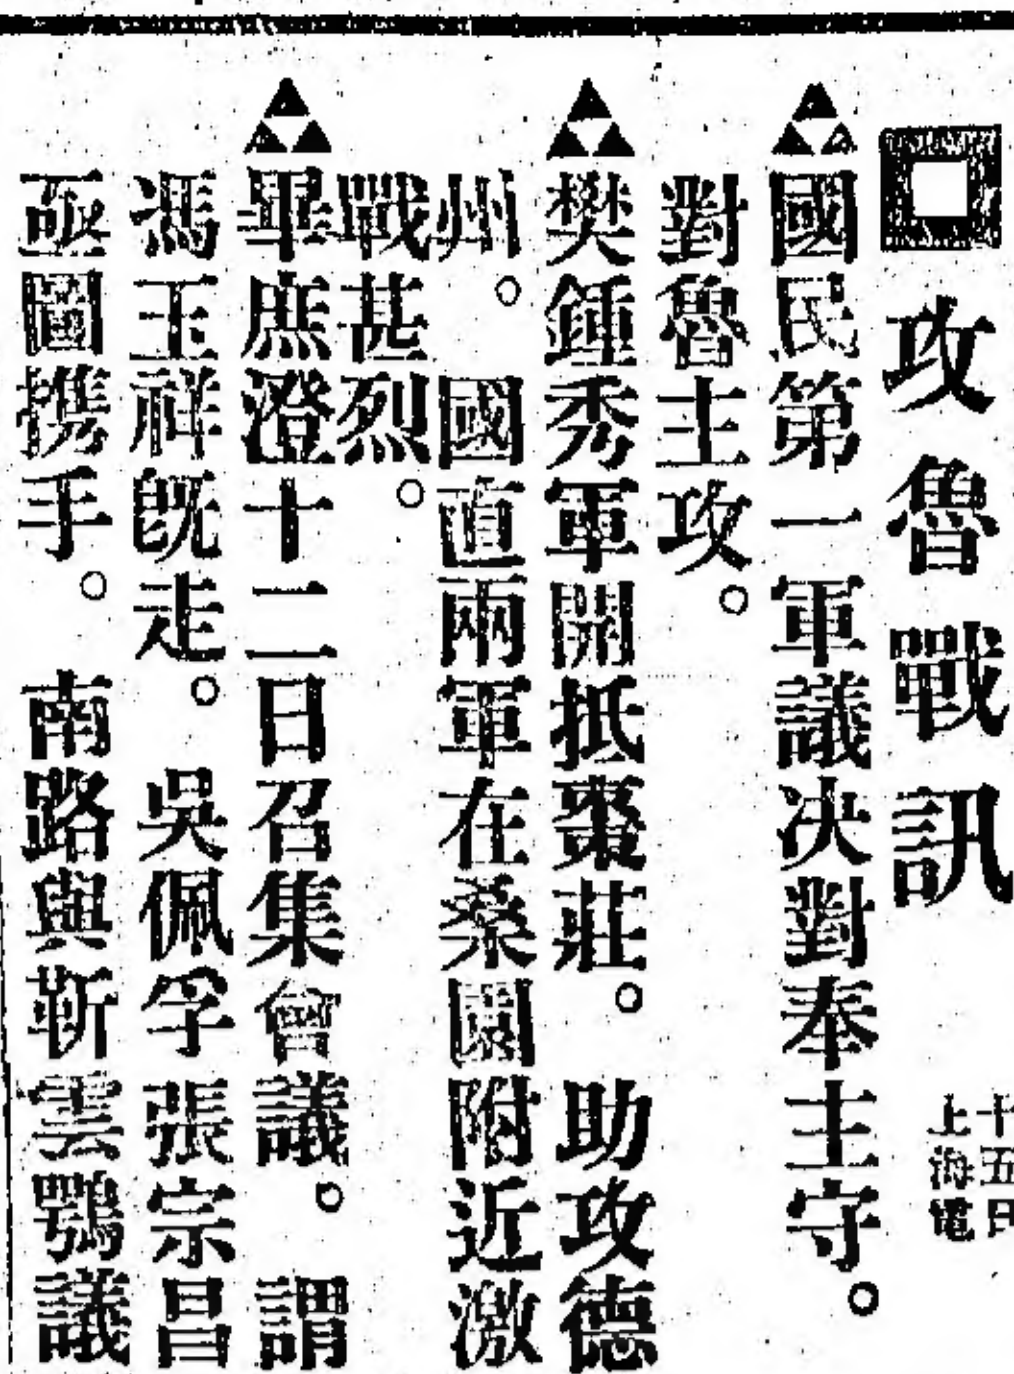 攻魯戰訊
十五日
上海電
國民第一軍議决對奉主守。
對魯主攻。
樊鍾秀軍開抵棗莊。助攻德
州。國直兩軍在桑園附近激
戰甚烈。
畢庶澄十二日召集會議。謂
馮玉祥旣走。吳佩孚張宗昌
亟圖携手。南路與靳雲鶚議